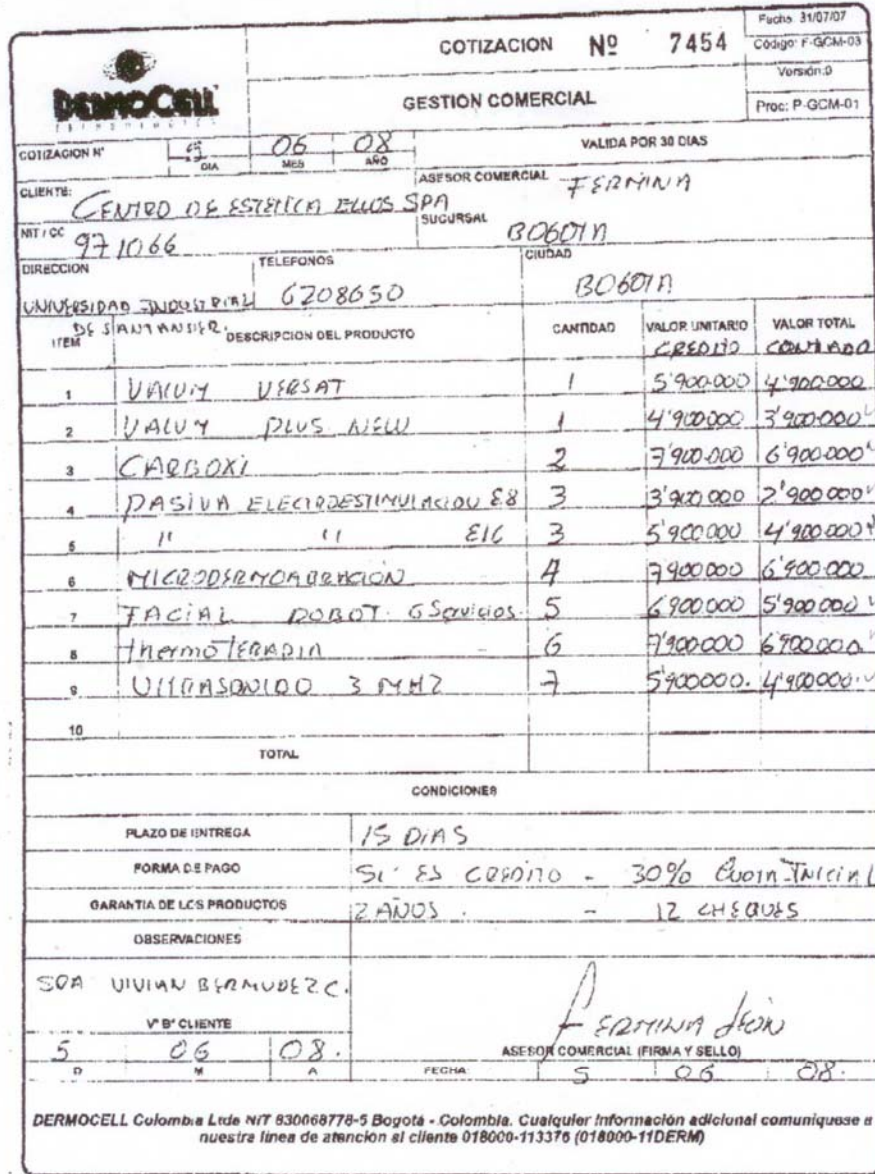 COTIZACION Nº 7454
Fecha: 31/07/07
Código: F-GCM-03
Versión:0
DERMOCELL
GESTION COMERCIAL
Proc: P-GCM-01
COTIZACION Nº 5 06 08
DIA MES AÑO
VALIDA POR 30 DIAS
CLIENTE: CENTRO DE ESTETICA ELLOS SPA
ASESOR COMERCIAL FERMINA
NIT / CC 971066
SUCURSAL BOGOTA
DIRECCION UNIVERSIDAD INDUSTRIAL
DE SANTANSIER.
TELEFONOS 6208650
CIUDAD BOGOTA
ITEM DESCRIPCION DEL PRODUCTO CANTIDAD VALOR UNITARIO VALOR TOTAL
CREDITO CONTADO
1 VACUM VERSAT 1 5'900.000 4'900.000
2 VACUM PLUS NEW 1 4'900.000 3'900.000
3 CARBOXI 2 7'900.000 6'900.000
4 PASIVA ELECTROESTIMULACION E8 3 3'900.000 2'900.000
5 " " E16 3 5'900000 4'900000
6 MICRODERMOABRACION 4 7900000 6'900.000
7 FACIAL ROBOT 6 Servicios. 5 6900000 5'900000
8 thermoTERAPIA 6 7'900000 6'900.000
9 ULTRASONIDO 3 MHZ 7 5'900000. 4'900000.
10
TOTAL
CONDICIONES
PLAZO DE ENTREGA 15 DIAS
FORMA DE PAGO SI ES CREDITO - 30% Cuota INICIAL
GARANTIA DE LOS PRODUCTOS 2 AÑOS. - 12 CHEQUES
OBSERVACIONES
SPA VIVIAN BERMUDEZ C.
Vº Bº CLIENTE
FERMINA LEON
ASESOR COMERCIAL (FIRMA Y SELLO)
5 06 08.
D M A
FECHA: 5 06 08.
DERMOCELL Colombia Ltda NIT 830068778-5 Bogotá - Colombia. Cualquier información adicional comuniquese a
nuestra línea de atención al cliente 018000-113376 (018000-11DERM)